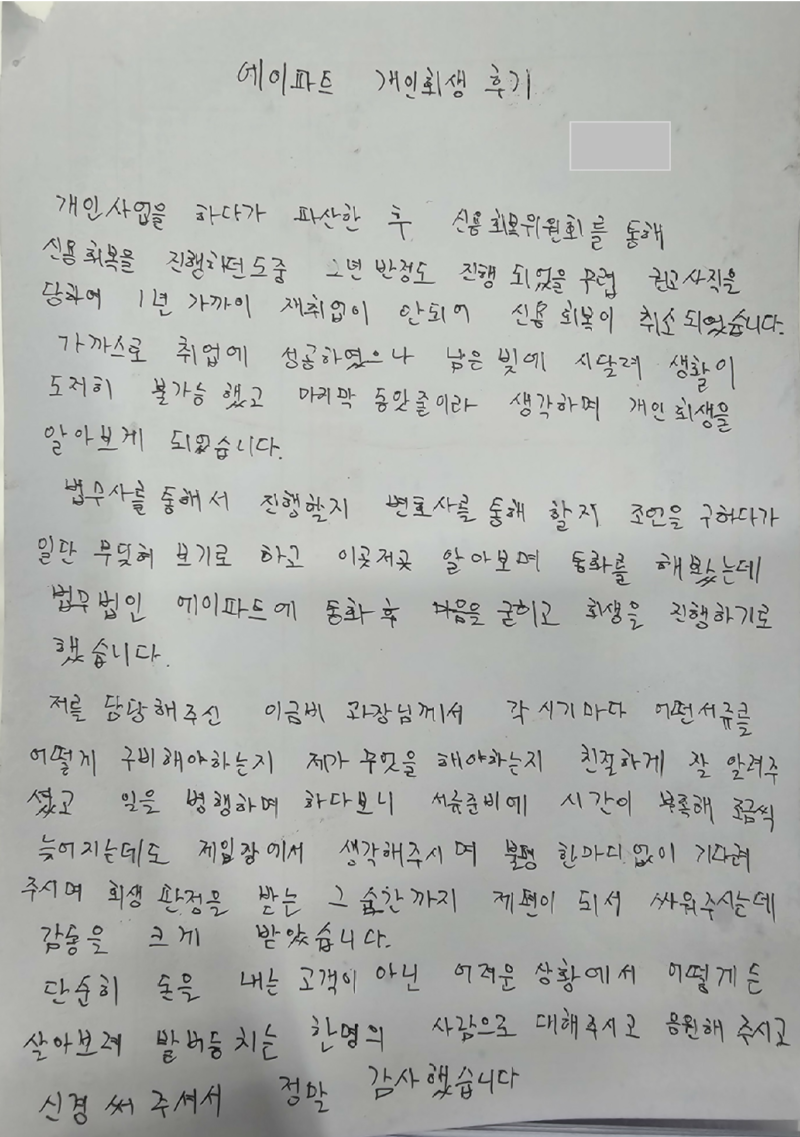 에이파트 개인회생 후기
개인사업을 하다가 파산한 후 신용회복위원회를 통해
신용회복을 진행하던도중 2년반정도 진행 되었을무렵 권고사직을
당하여 1년 가까이 재취업이 안되어 신용회복이 취소되었습니다.
가까스로 취업에 성공하였으나 남은 빚에 시달려 생활이
도저히 불가능했고 마지막 동앗줄이라 생각하며 개인회생을
알아보게 되었습니다.
법무사를통해서 진행할지 변호사를통해 할지 조언을구하다가
일단 부딪혀보기로 하고 이곳저곳 알아보며 통화를 해봤는데
법무법인 에이파트에 통화후 마음을굳히고 회생을 진행하기로
했습니다.
저를 담당해주신 이금비 과장님께서 각시기마다 어떤서류를
어떻게 구비해야하는지 제가무엇을해야하는지 친절하게 잘 알려주
셨고 일을 병행하며 하다보니 서류준비에 시간이 부족해 조금씩
늦어지는데도 제입장에서 생각해주시며 불평 한마디없이 기다려
주시며 회생 판정을 받는 그 순간까지 제편이 되서 싸워주시는데
감동을 크게 받았습니다.
단순히 돈을 내는 고객이 아닌 어려운상황에서 어떻게든
살아보려 발버둥치는 한명의 사람으로 대해주시고 응원해주시고
신경써주셔서 정말 감사했습니다